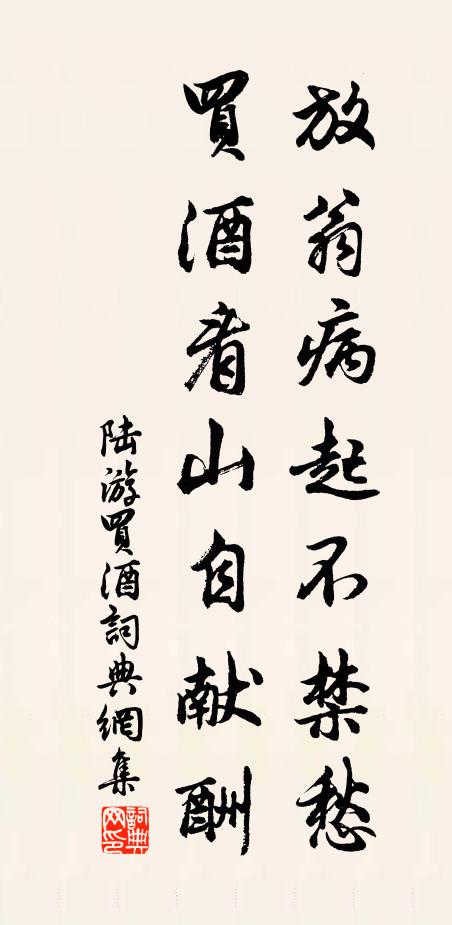 放翁病起不禁愁
買酒看山自献酬
陆游買酒詞典網集
詞典网印